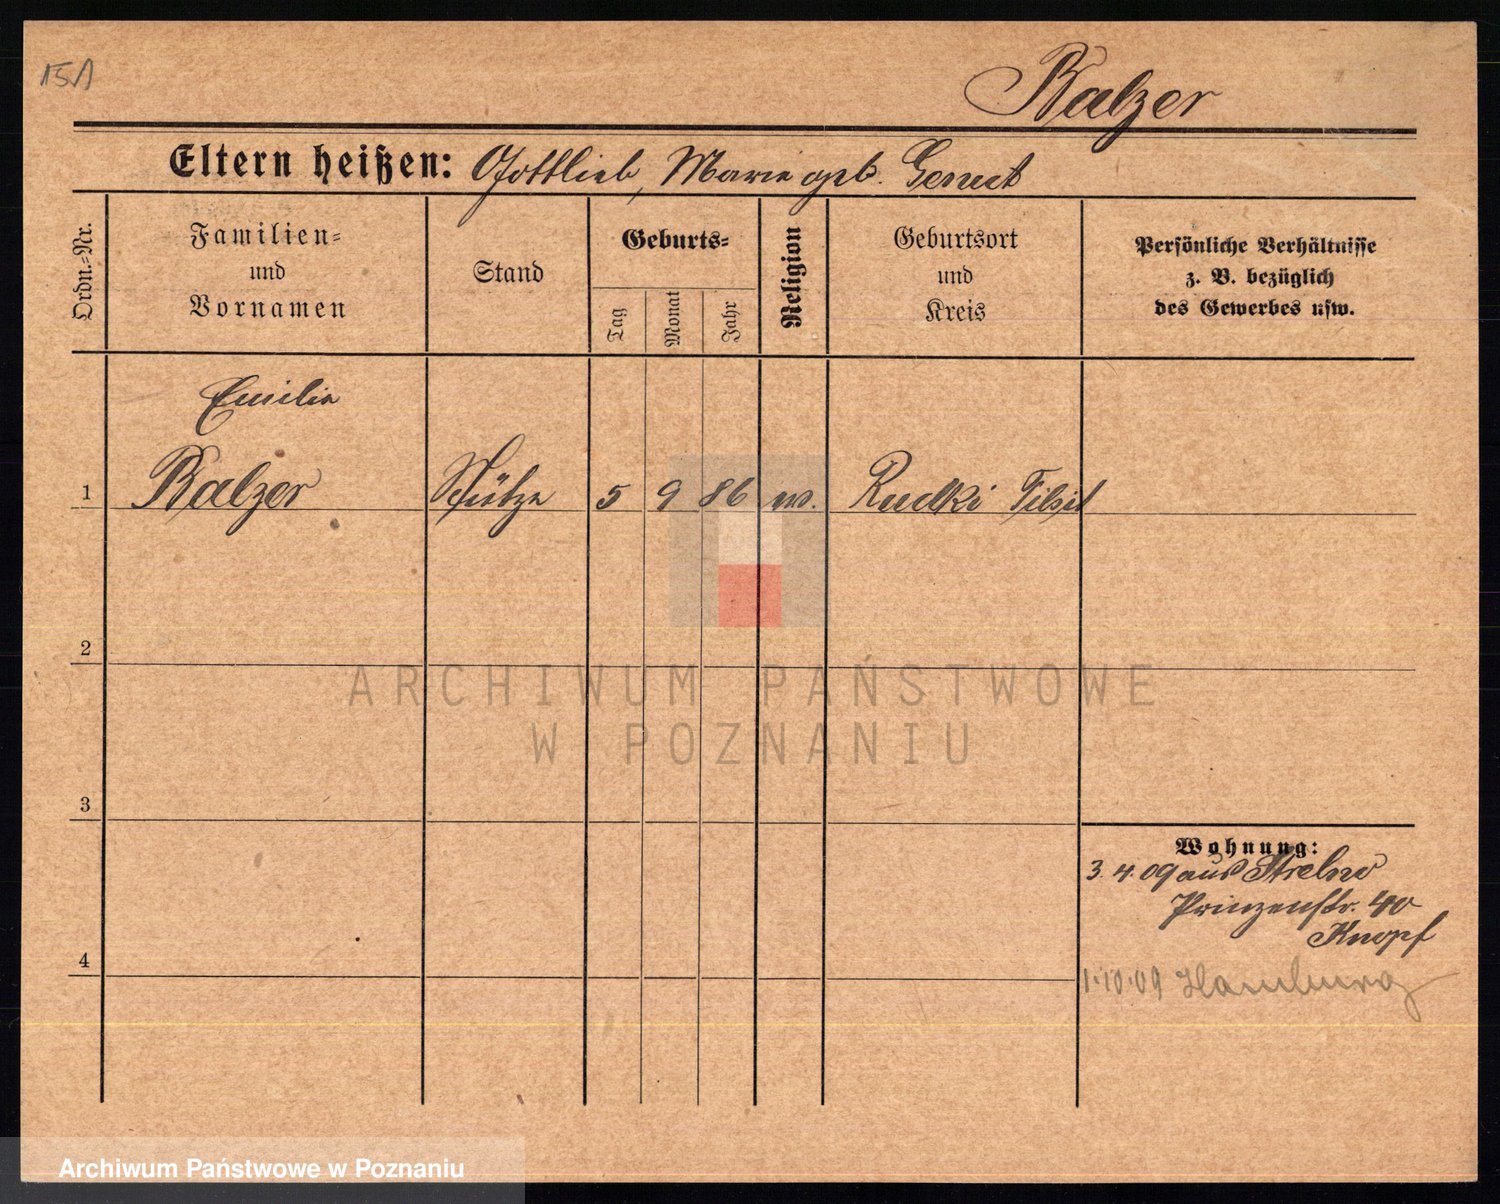 15A
Balzer
Eltern heißen: Gottlieb, Marie geb.
Ordn.-Nr.
Familien-
und
Vornamen
Stand
Geburts-
Tag
Monat
Jahr
Religion
Geburtsort
und
Kreis
Persönliche Verhältnisse
z. B. bezüglich
des Gewerbes usw.
Emilie
1 Balzer Stütze 5 9 86 Rudki Tilsit
2
ARCHIWUM PAŃSTWOWE
W POZNANIU
3
Wohnung:
3. 4. 09 aus Strelno
Prinzenstr. 40
Knopf
4
1.10.09 Hamburg
Archiwum Państwowe w Poznaniu